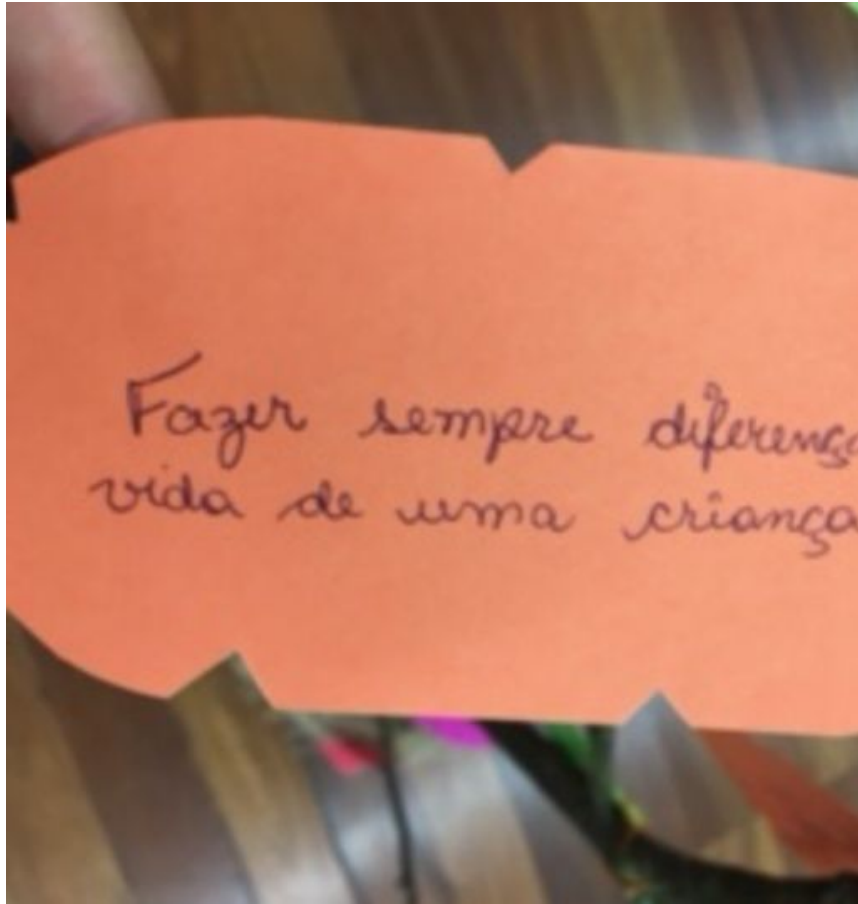 Fazer sempre diferenç
vida de uma criança